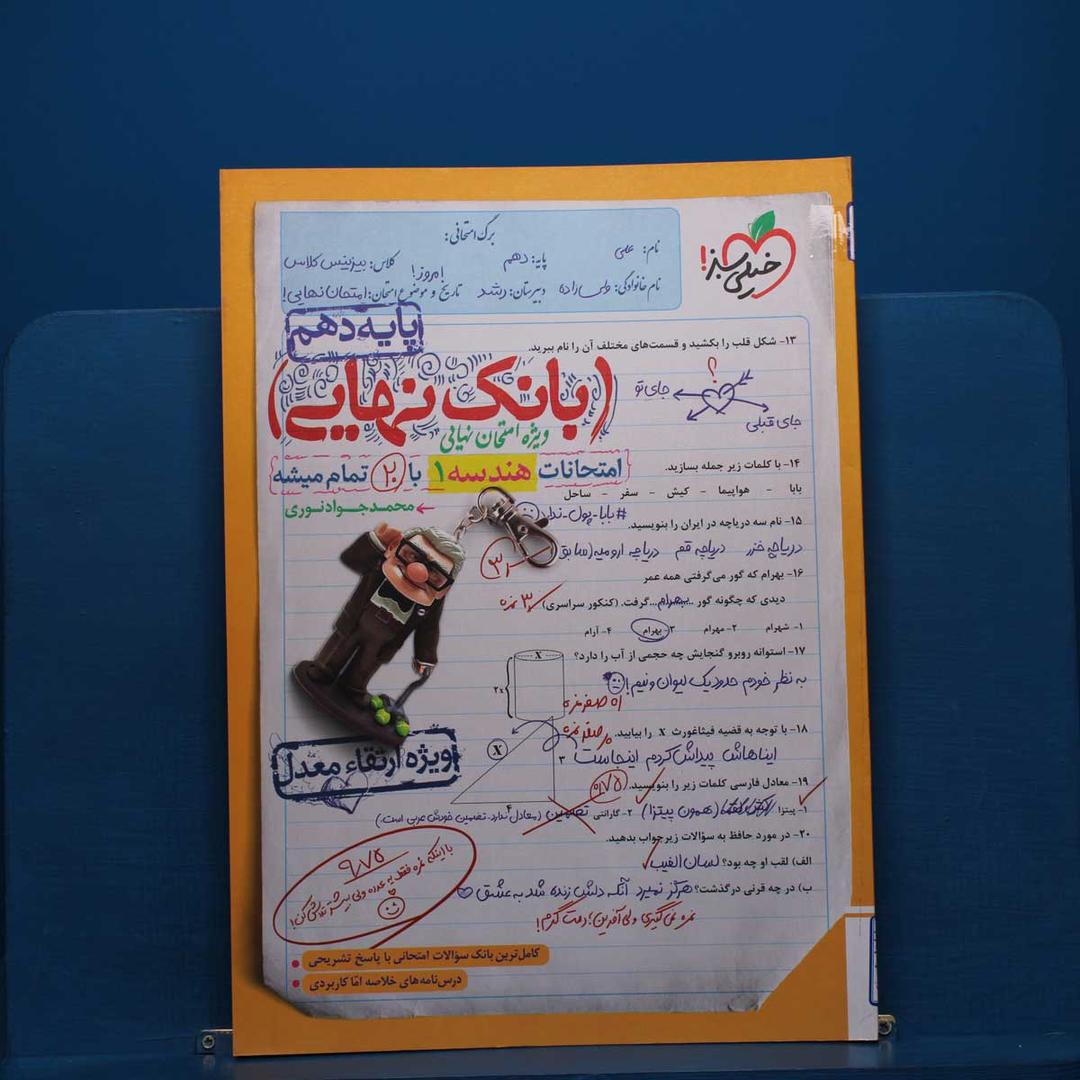 خیلی سبز!
برگ امتحانی:
نام: علی
پایه: دهم
کلاس: بیزینس کلاس
نام خانوادگی: ولی زاده
دبیرستان: رشد
تاریخ و موضوع امتحان: امتحان نهایی!
امروز!
پایه دهم
(بانک نهایی)
ویژه امتحان نهایی
امتحانات هندسه ۱ با ۲۰ تمام میشه
محمدجواد نوری
۱۳- شکل قلب را بکشید و قسمت‌های مختلف آن را نام ببرید.
؟
جای تو
جای قبلی
۱۴- با کلمات زیر جمله بسازید.
بابا - هواپیما - کیش - سفر - ساحل
#بابا-پول-ندارد
۱۵- نام سه دریاچه در ایران را بنویسید.
دریاچه خزر دریاچه قم دریاچه ارومیه (سابق)
۳
۱۶- بهرام که گور می‌گرفتی همه عمر
دیدی که چگونه گور ...بهرام... گرفت. (کنکور سراسری)
۳ نمره
۱- شهرام ۲- مهرام ۳- بهرام ۴- آرام
۱۷- استوانه روبرو گنجایش چه حجمی از آب را دارد؟
x
۲x
به نظر خودم حدود یک لیوان و نیم!
اه صفر نمره
۱۸- با توجه به قضیه فیثاغورث x را بیابید.
صفر نمره
ایناهاش پیداش کردم اینجاست
X
۳
۴
۱۹- معادل فارسی کلمات زیر را بنویسید.
۰/۷۵
۱- پیتزا (همون پیتزا) ۲- گارانتی تضمین (معادل ندارد. تضمین خودش عربی است.)
۲۰- در مورد حافظ به سؤالات زیر جواب بدهید.
الف) لقب او چه بود؟ لسان الغیب
ب) در چه قرنی درگذشت؟ هرگز نمیرد آنکه دلش زنده شد به عشق
نمره نمی‌گیری ولی آفرین؛ دمت گرم!
ویژه ارتقاء معدل
۹/۷۵
با اینکه نمره فقط یه عدده ولی بیشتر تلاش کن!
کامل‌ترین بانک سؤالات امتحانی با پاسخ تشریحی
درس‌نامه‌های خلاصه امّا کاربردی